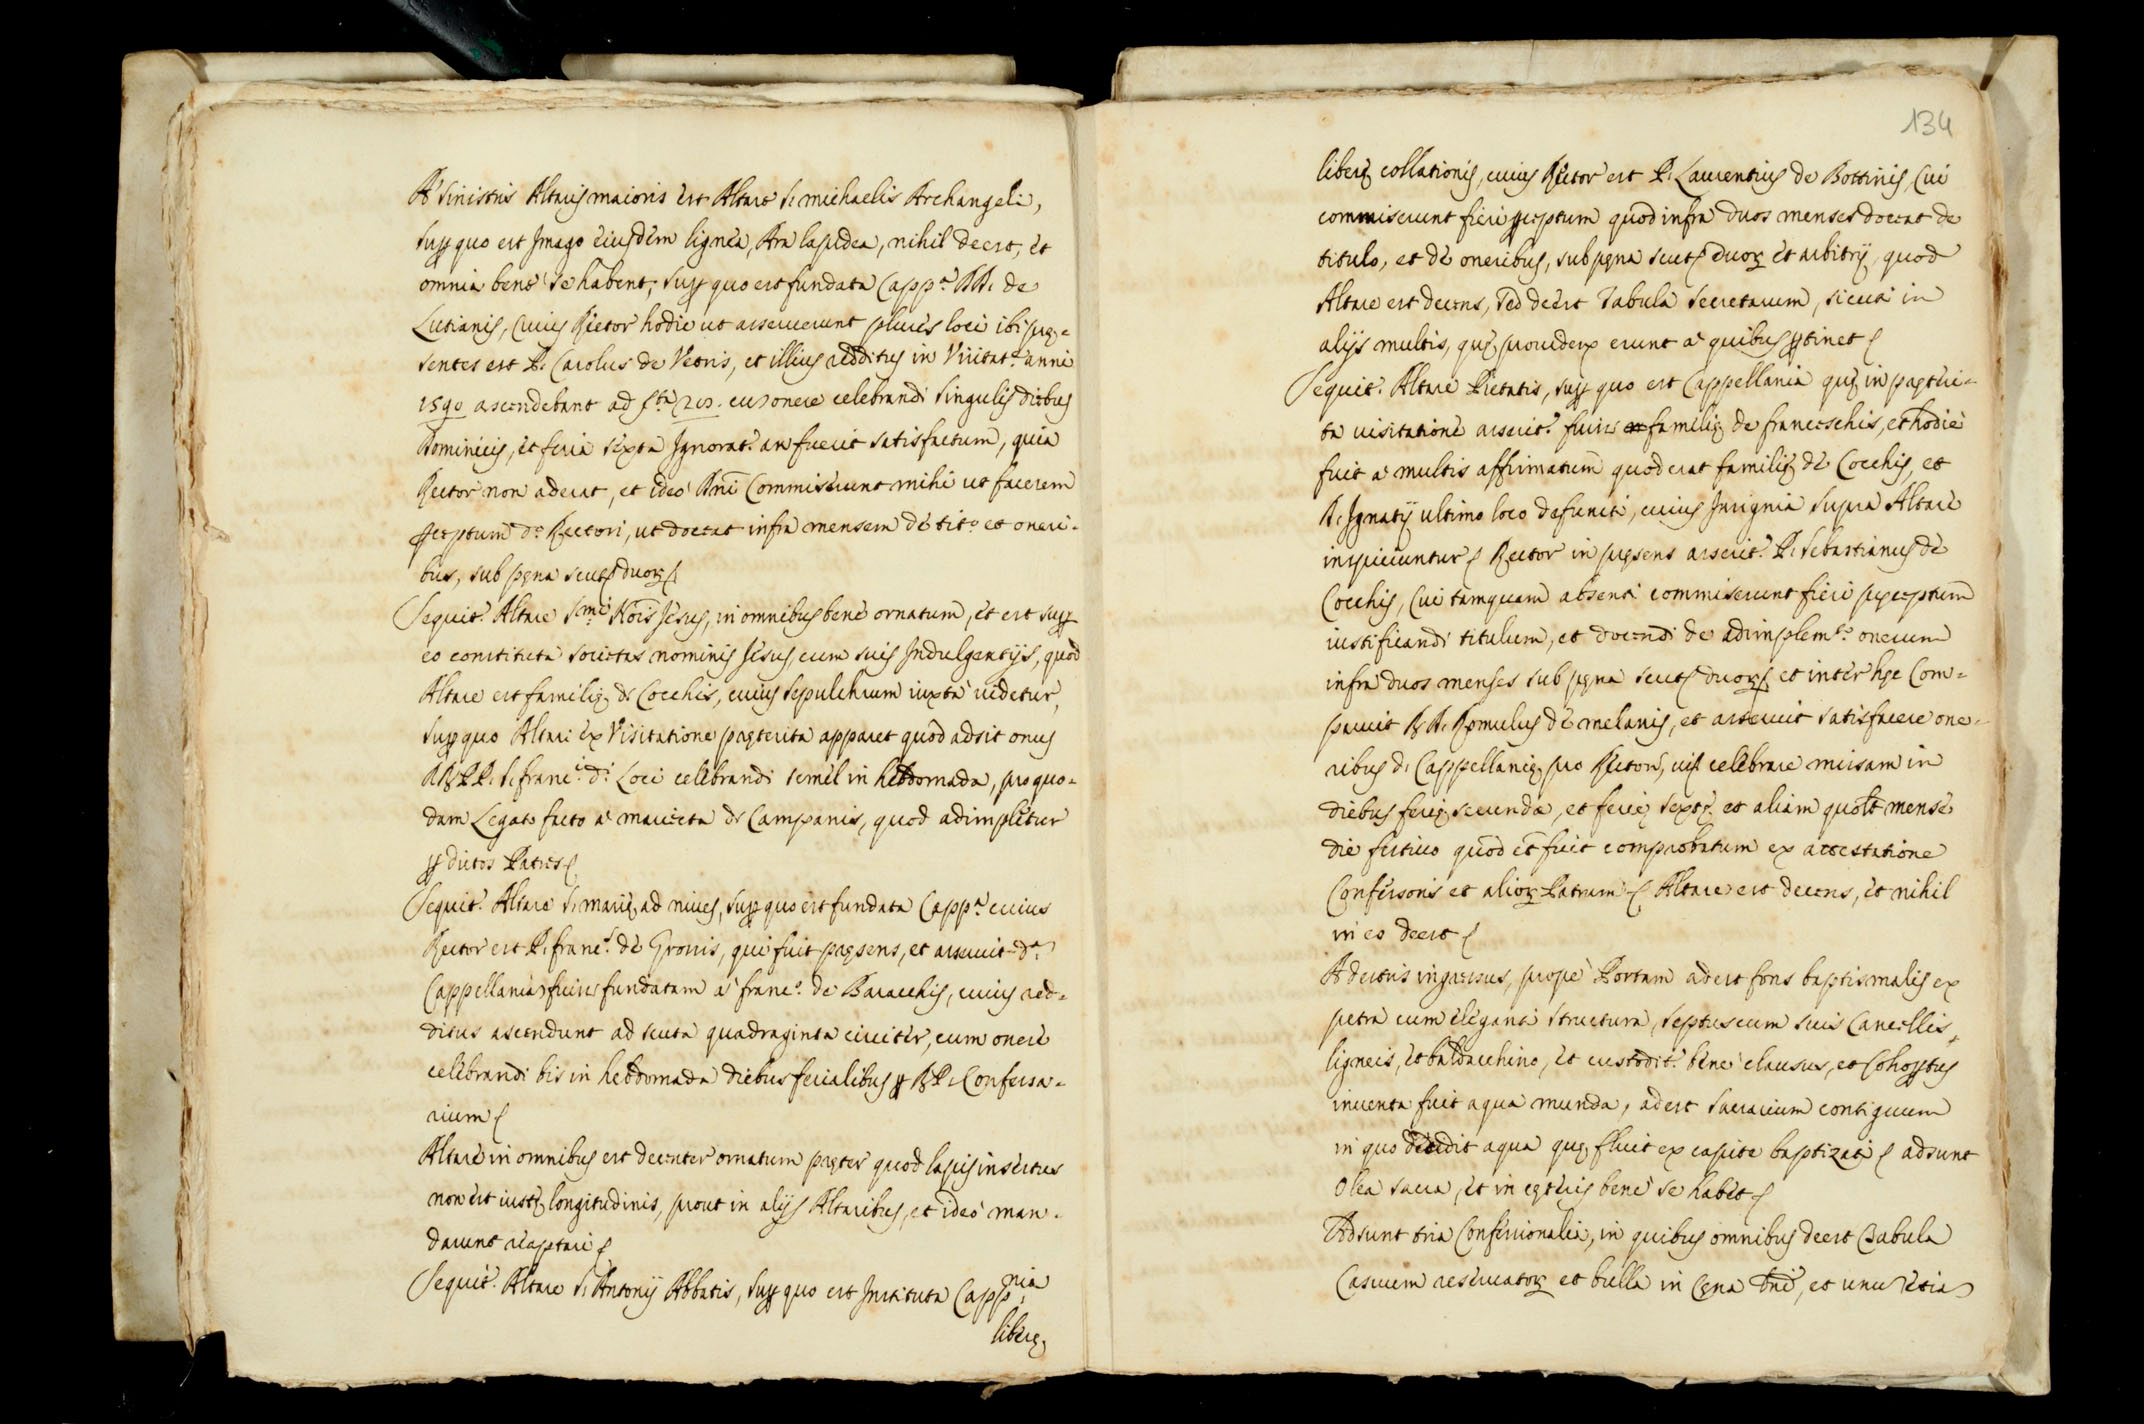 A' sinistris Altaris maioris est Altare S. michaelis Archangeli,
sup quo est Imago eiusdem lignea, Ara lapidea, nihil deest, et
omnia bene se habent, sup quo est fundata Capp.ª DD. de
Lutianis, cuius Rector hodie ut asseruerunt plures loci ibi pre=
sentes est P. Carolus de Vetris, et illius redditus in Visitat.e anni
1590 ascendebant ad cum onere celebrandi singulis diebus
Dominicis, et feria sexta Ignorat.r an fuerit satisfactum, quia
Rector non aderat, et ideo Dni Commiserunt mihi ut facerem
pceptum d.º Rectori, ut doceat infra mensem de tit.º et oneri=
bus, sub pęna scut. duor.
Sequit.r Altare S.mi Nois Iesus, in omnibus bene ornatum, et est sup
eo constituta societas nominis Iesus, cum suis Indulgentijs, quod
Altare est familię de Cocchis, cuius sepulchrum iuxta uidetur,
sup quo Altari ex Visitatione pręterita apparet quod adsit onus
RR PP. S. franc.i d.i Loci celebrandi semel in hebdomada, pro quo=
dam Legato facto a' de Campanis, quod adimpletur
p dictos Patres
Sequit.r Altare S. marię ad niues, sup quo est fundata Capp.ª cuius
Rector est P. franc.s de Gronis, qui fuit pręsens, et asseruit d.am
Cappellaniam fuisse fundatam a' franc.º de Baracchis, cuius red=
ditus ascendunt ad scuta quadraginta circiter, cum onere
celebrandi bis in hebdomada diebus ferialibus p R P. Confessa=
rium
Altare in omnibus est decenter ornatum pręter quod lapis insertus
non est iustę longitudinis, prout in alijs Altaribus, et ideo man=
darunt reaptari
Sequit.r Altare S. Antonij Abbatis, sup quo est Instituta Capp.nia
liberę
134
liberę collationis, cuius Rector est P. Laurentius de Bottinis, Cui
commiserunt fieri pceptum quod infra duos menses doceat de
titulo, et de oneribus, sub pęna scut. duor. et arbitrij, quod
Altare est decens, sed deest Tabula secretarum, sicuti in
alijs multis, quę prouidenda erunt a' quibus ptinet
Sequit.r Altare Pietatis, sup quo est Cappellania quę in pręteri=
ta uisitatione asserit.r fuisse familię de francischis, et hodie
fuit a' multis affirmatum quod erat familię de Cocchis, et
D. Ignatij ultimo loco defuncti, cuius Insignia supra Altare
inspiciuntur Rector in pręsens asserit.r P. Sebastianus de
Cocchis, Cui tamquam absenti commiserunt fieri pręceptum
iustificandi titulum, et docendi de adimplem.to onerum
infra duos menses sub pęna scut. duor. et inter hęc Com=
paruit R D. Romulus de melanis, et asseruit satisfacere one=
ribus d. Cappellanię pro Rectore, uis. celebrare missam in
diebus ferię secunda, et ferię sextę, et aliam quolt mense
die festiuo quod et fuit comprobatum ex attestatione
Confessoris et alior. Patrum Altare est decens, et nihil
in eo deest
A dextris ingressus, prope Portam adest fons baptismalis ex
petra cum eleganti structura, septus cum suis Cancellis
ligneis, et baldacchino, et custodit.r bene clausus, et Cohoptus
inuenta fuit aqua munda, adest sacrarium contiguum
in quo decidit aqua quę fluit ex capite baptizati adsunt
Olea sacra, et in cęteris bene se habet
Adsunt tria Confessionalia, in quibus omnibus deest Tabula
Casuum reseruator. et bulla in Cęna Dni, et unu etiam